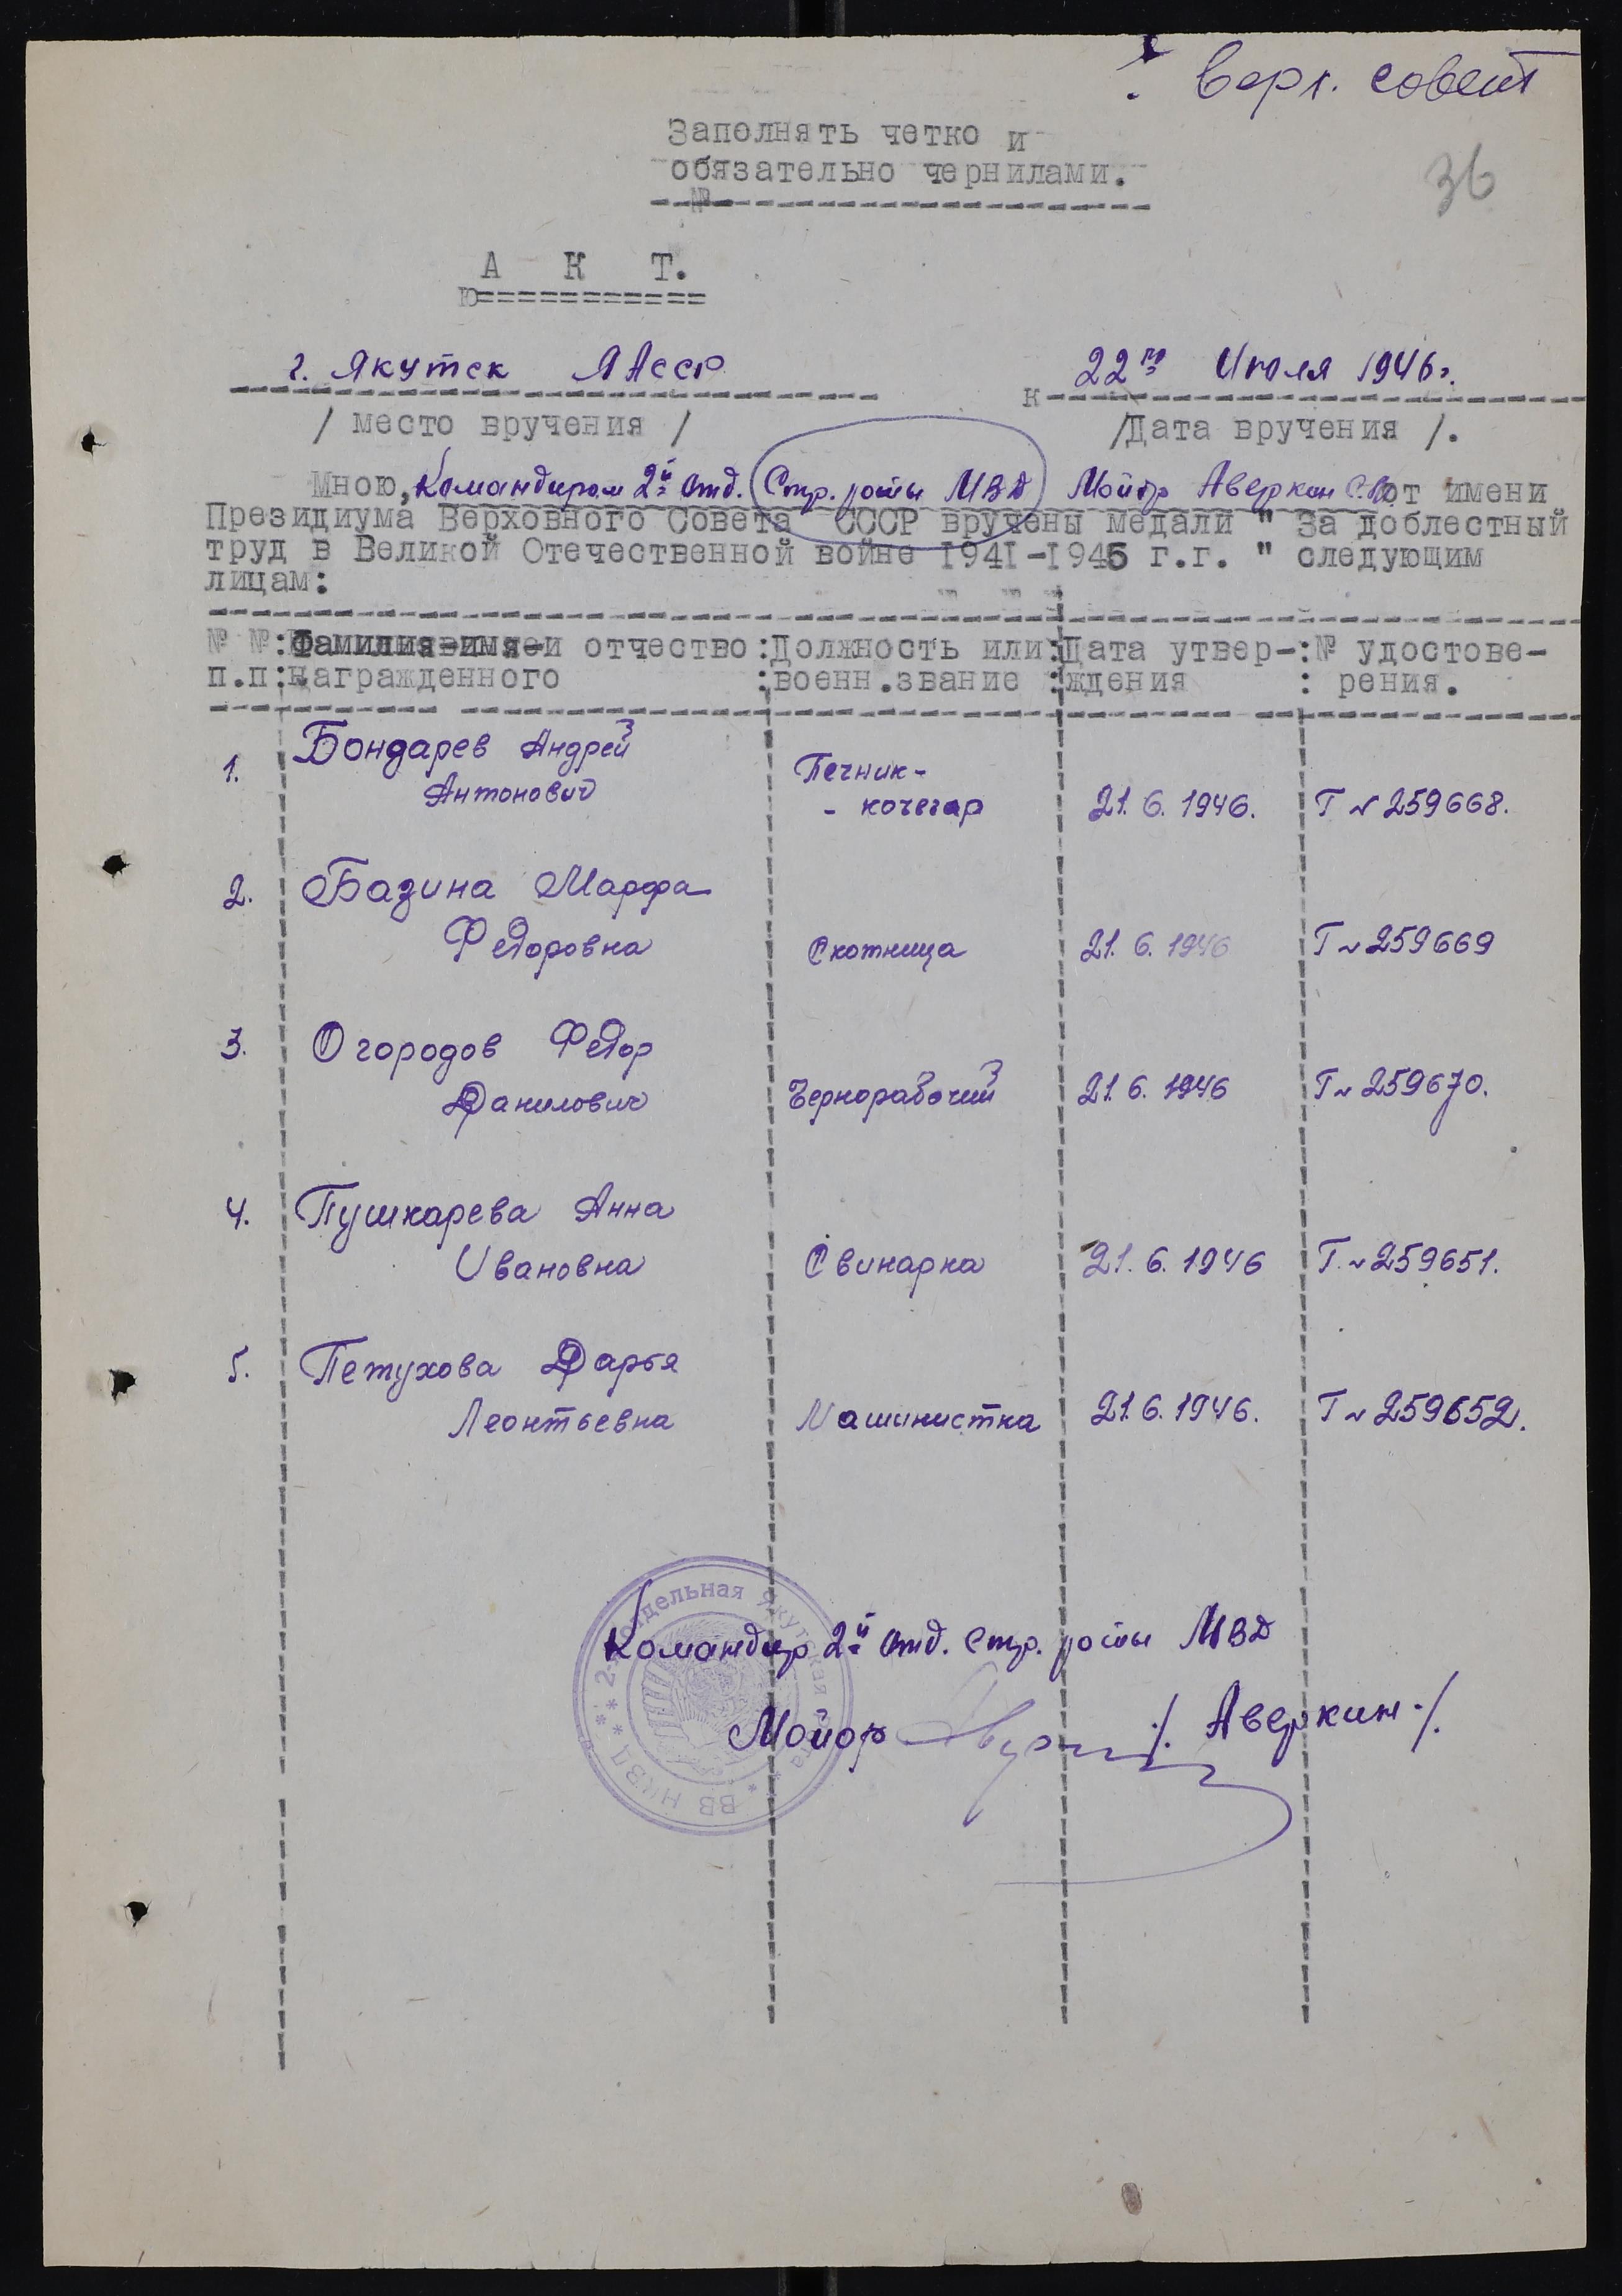 Верх. совет
Заполнять четко и
обязательно чернилами.
№
36
А К Т.
г. Якутск ЯАССР
22го Июля 1946г.
/ место вручения /
/Дата вручения /.
Мною, Командиром 2й отд. Стр. роты МВД Майор Аверкин от имени
Президиума Верховного Совета СССР вручены медали " За доблестный
труд в Великой Отечественной войне 1941-1945 г.г. " следующим
лицам:
№ №:Фамилия имя и отчество:Должность или:Дата утвер-:№ удостове-
п.п:награжденного :военн.звание :ждения : рения.
1. Бондарев Андрей
Антонович Печник-
- кочегар 21.6.1946. Г № 259668.
2. Базина Марфа
Федоровна Скотница 21.6.1946 Г № 259669
3. Огородов Федор
Данилович Чернорабочий 21.6.1946 Г № 259670.
4. Пушкарева Анна
Ивановна Свинарка 21.6.1946 Г. № 259651.
5. Петухова Дарья
Леонтьевна Машинистка 21.6.1946. Г № 259652.
2 отдельная Якутская рота ВВ НКВД
Командир 2й отд. Стр. роты МВД
Майор /. Аверкин ./.